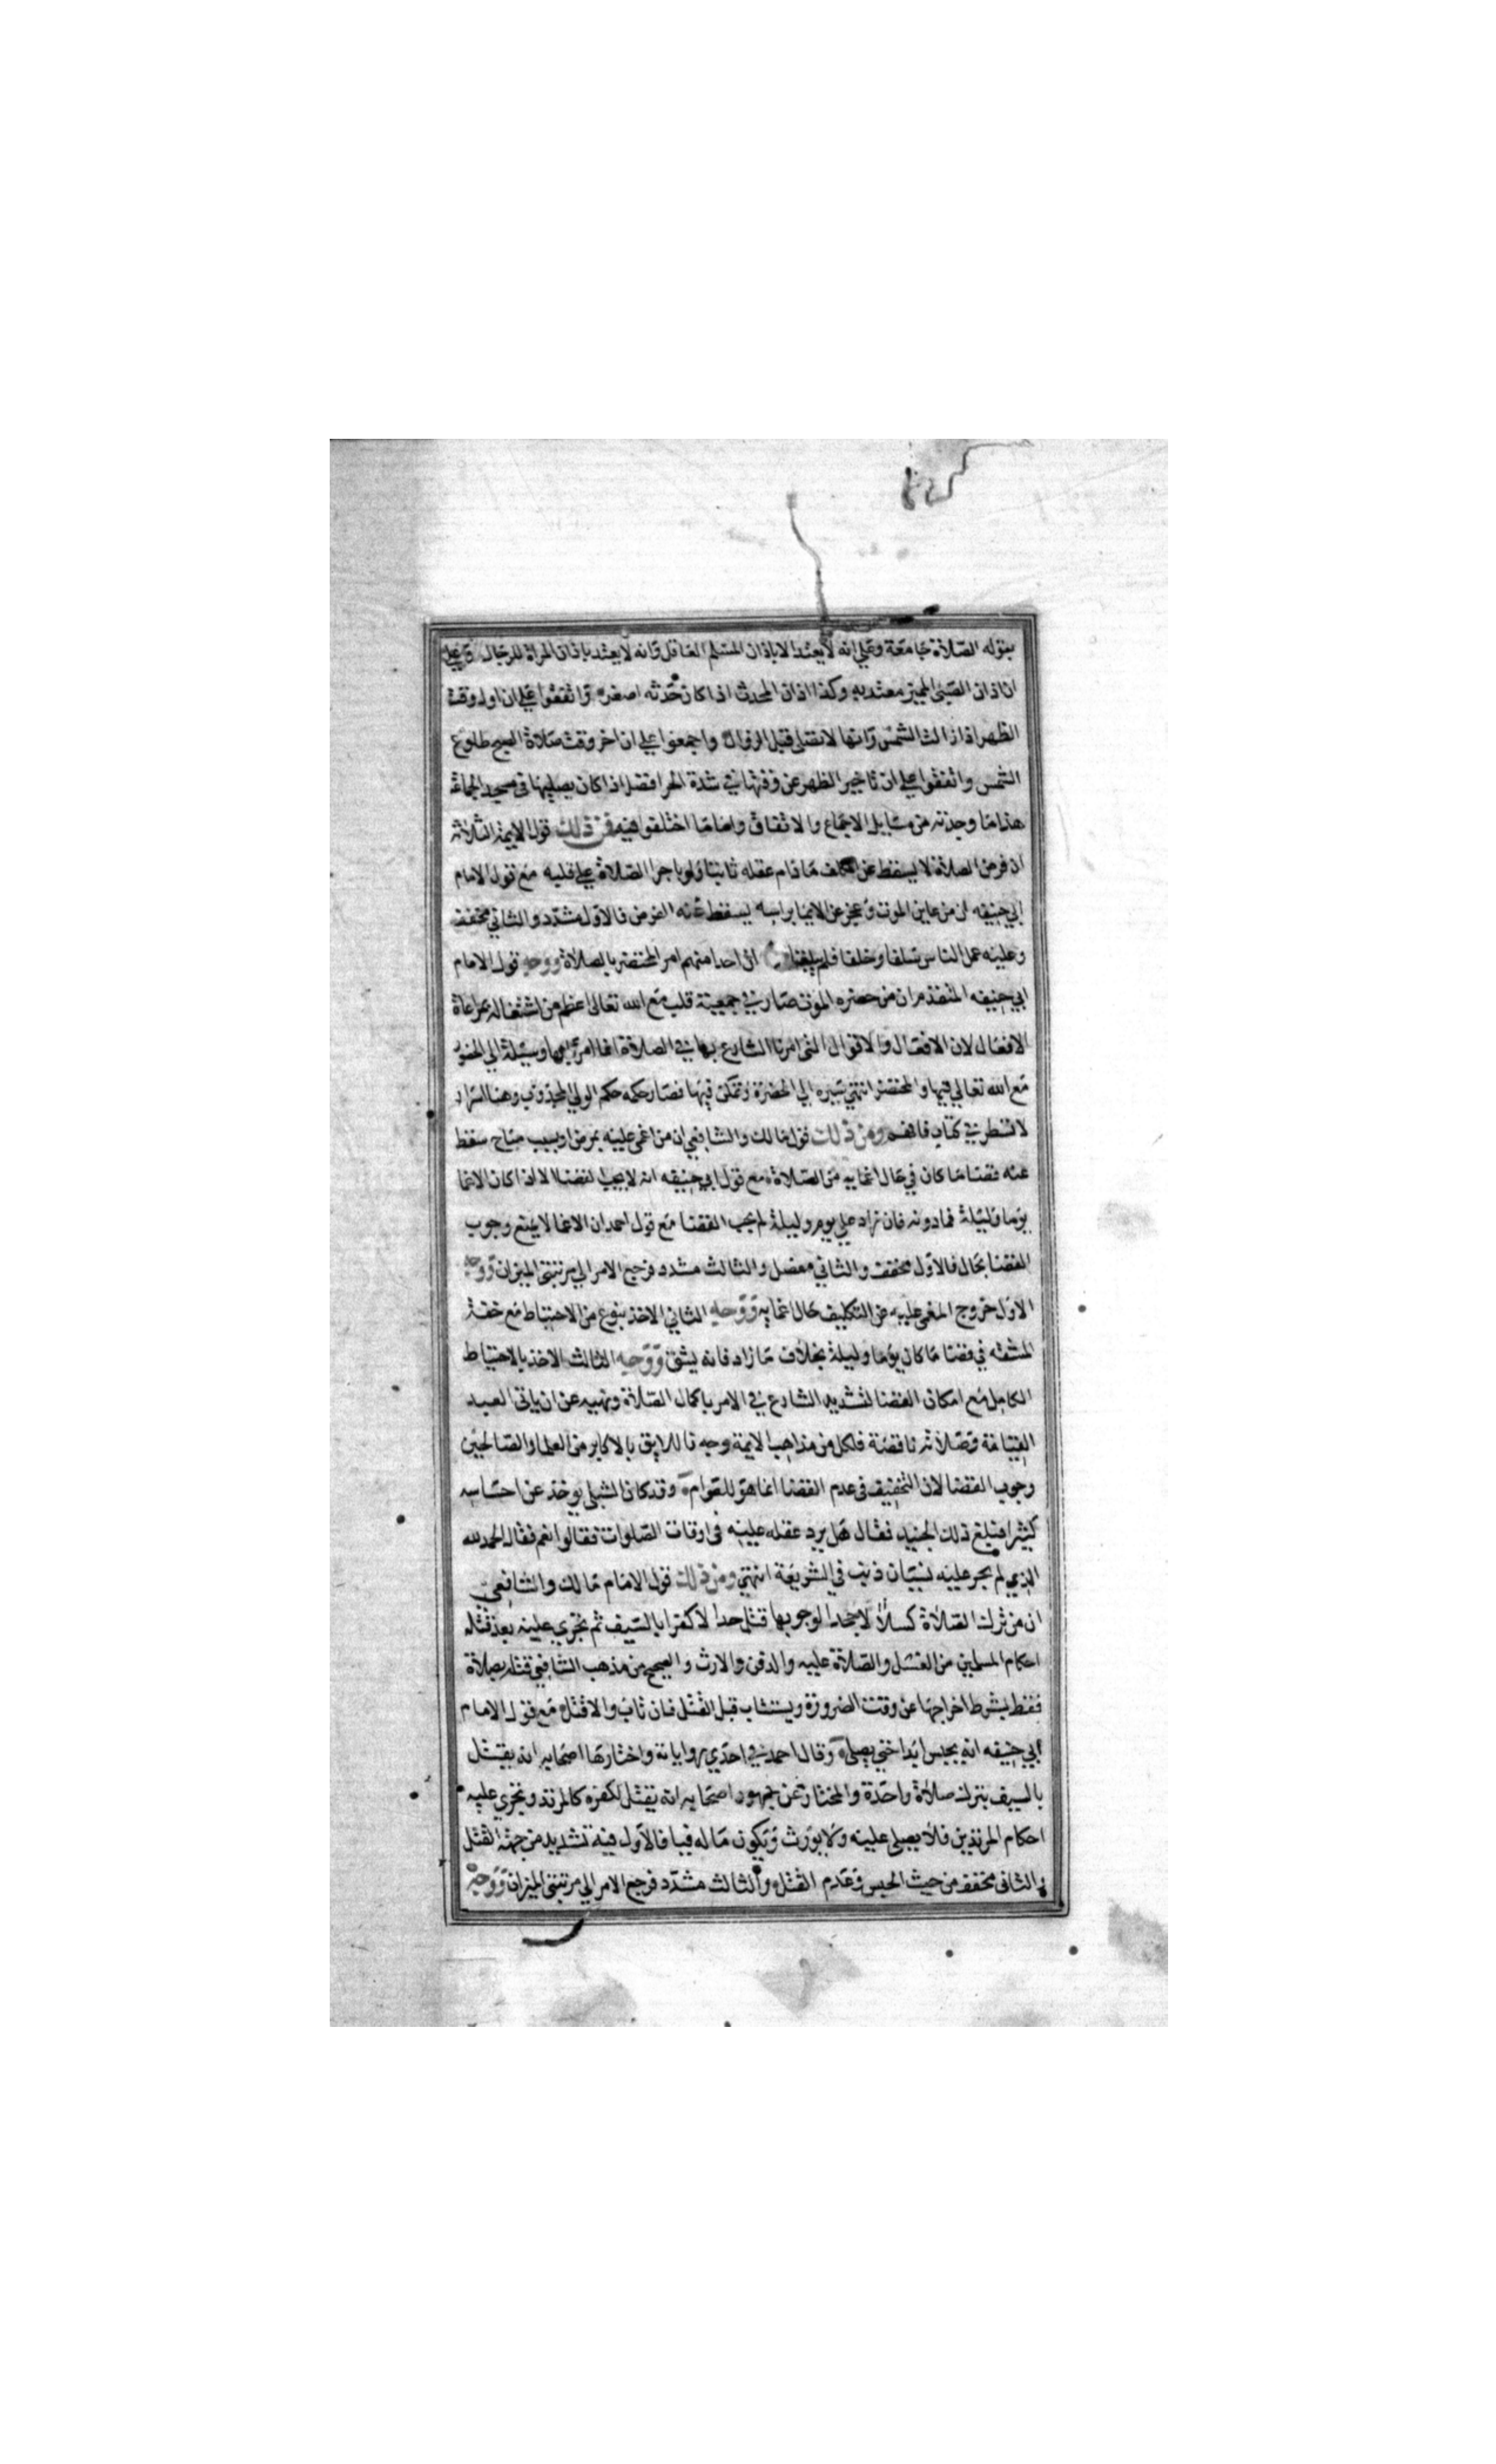 بقوله الصلاة جامعة وعلي انه لا يعتد الا باذان المسلم العاقل وانه لا يعتد باذان المراة للرجال وعلي
ان اذان الصبي المميز معتد به وكذا اذان المحدث اذا كان حدثه اصغر واتفقوا علي ان اول وقت
الظهر اذا زالت الشمس وانها لا تصلي قبل الزوال واجمعوا علي ان اخر وقت صلاة الصبح طلوع
الشمس واتفقوا علي ان تاخير الظهر عن وقتها في شدة الحر افضل اذا كان يصليها في مسجد الجماعة
هذا ما وجدته من مسايل الاجماع والاتفاق واما ما اختلفوا فيه فمن ذلك قول الايمة الثلاثة
ان فرض الصلاة لا يسقط عن المكلف ما دام عقله ثابتا ولو باجرا الصلاة علي قلبه مع قول الامام
ابي حنيفه ان من عاين الموت وعجز عن الايما براسه يسقط عنه الفرض فالاول مشدد والثاني مخفف
وعليه عمل الناس سلفا وخلفا فلم يبلغنا ان احدا منهم امر المحتضر بالصلاة ووجه قول الامام
ابي حنيفه المتقدم ان من حضره الموت صار في جمعية قلب مع الله تعالي اعظم من اشتغاله بمراعاة
الافعال لان الافعال والاقوال التي امرنا الشارع بها في الصلاة انما امر بها وسيلة الي الحضور
مع الله تعالي فيها والمحتضر انتهي سيره الي الحضرة وتمكن فيها فصار حكمه حكم الولي المجذوب وهنا اسرار
لا تسطر في كتاب فافهم ومن ذلك قول مالك والشافعي ان من اغمي عليه بمرض او بسبب مباح سقط
عنه قضا ما كان في حال اغمايه من الصلاة مع قول ابي حنيفه انه لا يجب القضا الا اذا كان الاغما
يوما وليلة فما دونه فان زاد علي يوم وليلة لم يجب القضا مع قول احمد ان الاغما لا يمنع وجوب
القضا بحال فالاول مخفف والثاني مفصل والثالث مشدد فرجع الامر الي مرتبتي الميزان ووجه
الاول خروج المغمي عليه عن التكليف حال اغمايه ووجه الثاني الاخذ بنوع من الاحتياط مع خفة
المشقه في قضا ما كان يوما وليلة بخلاف ما زاد فانه يشق ووجه الثالث الاخذ بالاحتياط
الكامل مع امكان القضا لتشديد الشارع في الامر باكمال الصلاة ونهيه عن ان ياتي العبد
القيامة وصلاته ناقصة فلكل من مذاهب الايمة وجه فاللايق بالاكابر من العلما والصالحين
وجوب القضا لان التخفيف في عدم القضا انما هو للعوام وقد كان الشبلي يوخذ عن احساسه
كثيرا فبلغ ذلك الجنيد فقال هل يرد عقله عليه في اوقات الصلوات فقالوا نعم فقال الحمد لله
الذي لم يجر عليه لسان ذنب في الشريعة انتهي ومن ذلك قول الامام مالك والشافعي
ان من ترك الصلاة كسلا لا جحدا لوجوبها قتل حدا لا كفرا بالسيف ثم تجري عليه بعد قتله
احكام المسلمين من الغسل والصلاة عليه والدفن والارث والصحيح من مذهب الشافعي قتله بصلاة
فقط بشرط اخراجها عن وقت الضرورة ويستتاب قبل القتل فان تاب والا قتل مع قول الامام
ابي حنيفه انه يحبس ابدا حتي يصلي وقال احمد في احدي رواياته واختارها اصحابه انه يقتل
بالسيف بترك صلاة واحدة والمختار عن جمهور اصحابه انه يقتل لكفره كالمرتد وتجري عليه
احكام المرتدين فلا يصلي عليه ولا يورث ويكون ماله فيا فالاول فيه تشديد من جهة القتل
والثاني مخفف من حيث الحبس وعدم القتل والثالث مشدد فرجع الامر الي مرتبتي الميزان ووجه